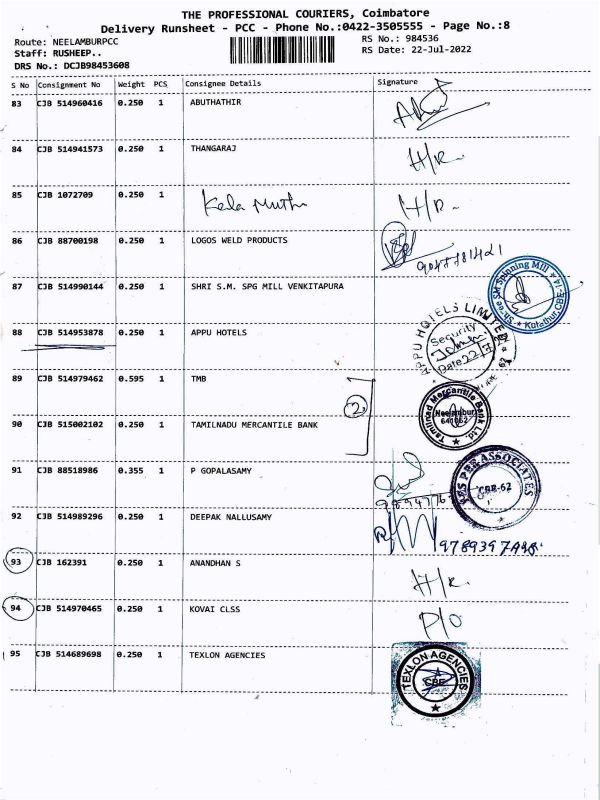 THE PROFESSIONAL COURIERS, Coimbatore
Delivery Runsheet - PCC - Phone No.:0422-3505555 - Page No.:8
Route: NEELAMBURPCC
RS No.: 984536
Staff: RUSHEEP..
RS Date: 22-Jul-2022
DRS No.: DCJB98453608
S No Consignment No Weight PCS Consignee Details Signature
83 CJB 514960416 0.250 1 ABUTHATHIR
84 CJB 514941573 0.250 1 THANGARAJ H/R.
85 CJB 1072709 0.250 1 Kala Muthu H/R.
86 CJB 88700198 0.250 1 LOGOS WELD PRODUCTS
87 CJB 514990144 0.250 1 SHRI S.M. SPG MILL VENKITAPURA Shree SM Spinning Mill
88 CJB 514953878 0.250 1 APPU HOTELS APPU HOTELS LIMITED
Security
Date 22
89 CJB 514979462 0.595 1 TMB
2
Tamilnad Mercantile Bank Ltd.
Neelambur
641062
90 CJB 515002102 0.250 1 TAMILNADU MERCANTILE BANK
91 CJB 88518986 0.355 1 P GOPALASAMY ASSOCIATES
CBE-62
92 CJB 514989296 0.250 1 DEEPAK NALLUSAMY
93 CJB 162391 0.250 1 ANANDHAN S H/R.
94 CJB 514970465 0.250 1 KOVAI CLSS P/O
95 CJB 514689698 0.250 1 TEXLON AGENCIES TEXLON AGENCIES
CBE